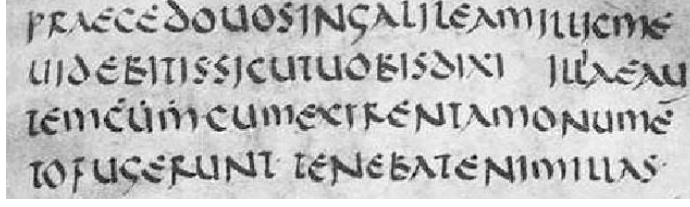 PRAECEDOUOSINGALILEAMILLICME
UIDEBITISSICUTUOBISDIXI ILLAEAU
TEMĊU̇ṀCUMEXIRENTAMONUMĒ
TOFUGERUNT TENEBATENIMILLAS